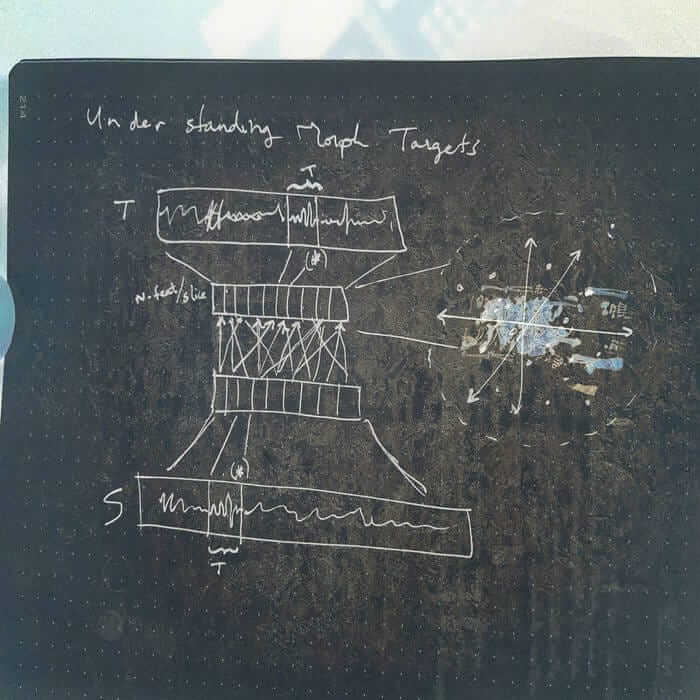 214
Understanding Morph Targets
T
T
(*)
N. feat/slice
(*)
S
T